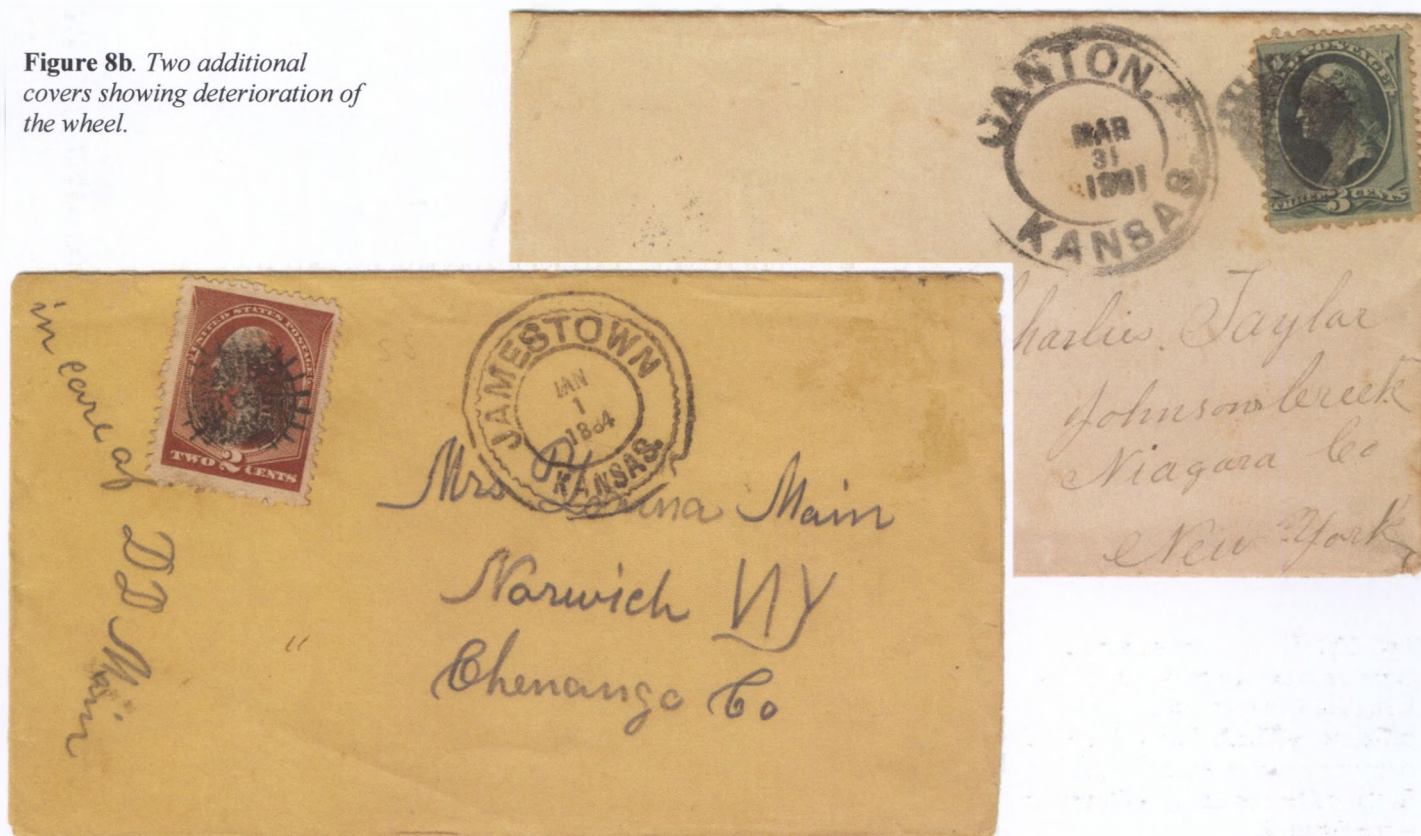 Figure 8b. Two additional
covers showing deterioration of
the wheel.
CANTON,
MAR
31
1881
KANSAS
U.S. POSTAGE
THREE 3 CENTS
Taylor
Johnsons Creek
Niagara Co
New York
in care of DD Main
UNITED STATES POSTAGE
TWO 2 CENTS
JAMESTOWN
JAN
1
1884
KANSAS.
Mrs Main
Norwich NY
Chenango Co